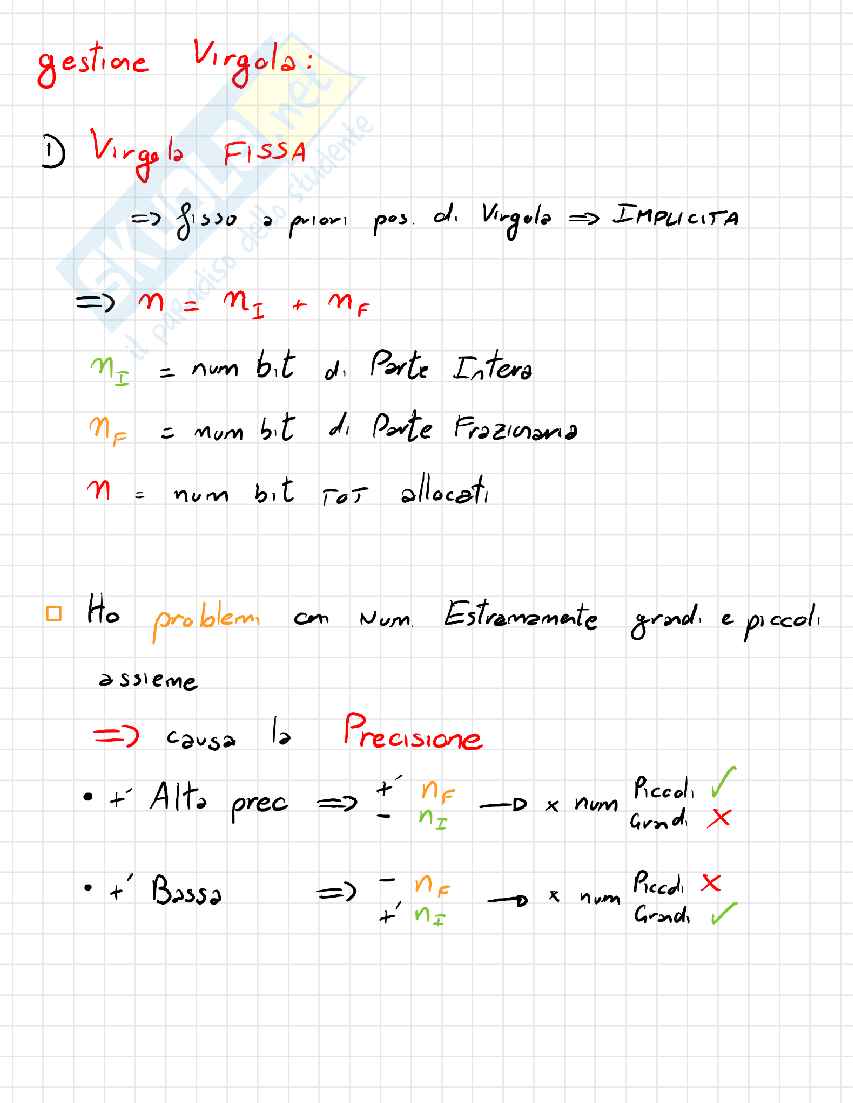 gestione Virgola:
1) Virgola FISSA
=> fisso a priori pos. di Virgola => IMPLICITA
=> n = nI + nF
nI = num bit di Parte Intera
nF = num bit di Parte Frazionaria
n = num bit TOT allocati
Ho problemi con Num. Estramamente grandi e piccoli
assieme
=> causa la Precisione
• +' Alta prec => +' nF - nI → x num Piccoli ✓ Grandi ✗
• +' Bassa => - nF +' nI → x num Piccoli ✗ Grandi ✓
SKUOLA.net
il paradiso dello studente